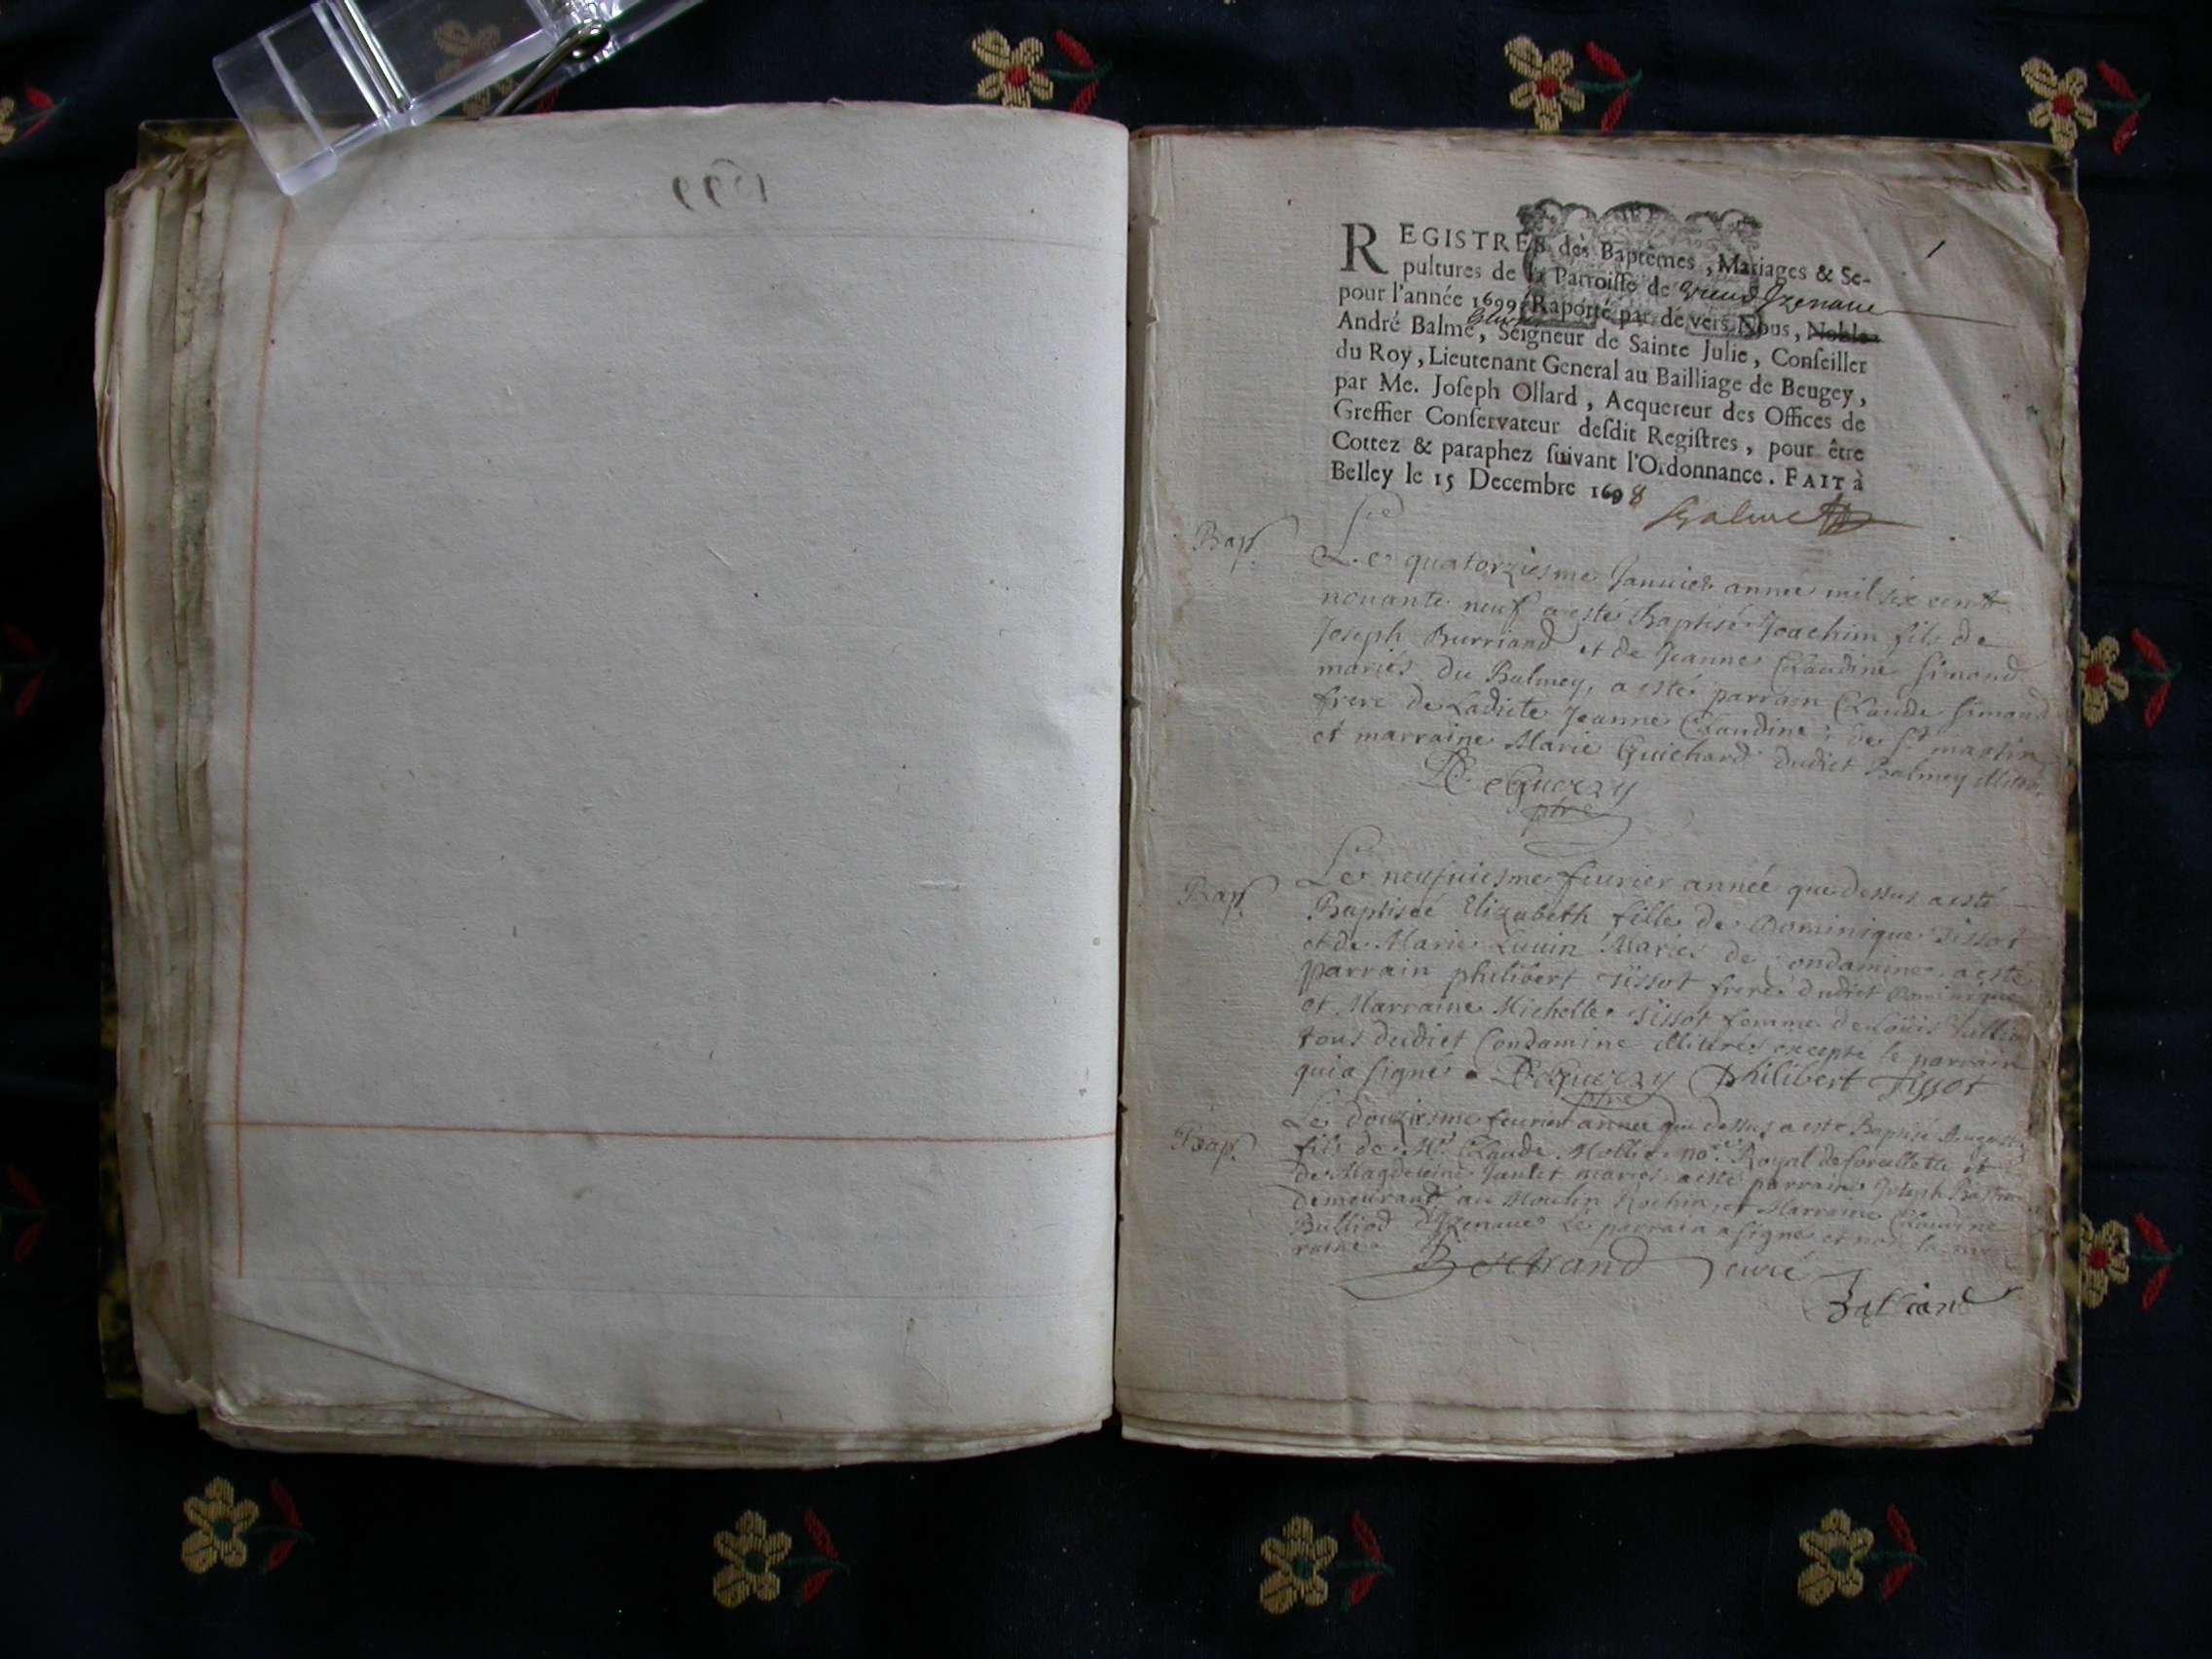 1699
1
REGISTRES des Baptêmes, Mariages & Se-
pultures de la Parroisse de Vieud Izenave
pour l'année 1699 Raporté par de vers Nous, Noble
André Balme, Seigneur de Sainte Julie, Conseiller
du Roy, Lieutenant General au Bailliage de Beugey,
par Me. Joseph Ollard, Acquereur des Offices de
Greffier Conservateur desdit Registres, pour être
Cottez & paraphez suivant l'Ordonnance. FAIT à
Belley le 15 Decembre 1698
Balme
Bap.
Le quatorziesme Januier année mil six cent
nonante neuf a esté Baptisé Joachim fils de
Joseph Burriand et de Jeanne Claudine Simond
mariés du Balmey, a esté parrain Claude Simond
frere de Ladicte Jeanne Claudine, de St martin
et marraine Marie Guichard dudict Balmey
DeGuerzy
ptre
Bap.
Le neufuiesme feurier année que dessus a esté
Baptiseé Elizabeth fille de Dominique Tissot
et de Marie Luuin Mariés de Condamine a esté
parrain philibert Tissot frere dudict Dominique
et Marraine Michelle Tissot femme de Loüis
tous dudict Condamine illitrés excepté le parrain
qui a signé. DeGuerzy Philibert Tissot
ptre
Bap.
Le douziesme feurier année que dessus a esté Baptisé
fils de Mr Claude Mollie nore Royal de et
de Magdeleine Jantet mariés a esté parrain Joseph
demeurand au Moulin et Marraine Claudine
Bulliod d'Izenaue Le parrain a signé et non la mar
raine
Bertrand curé